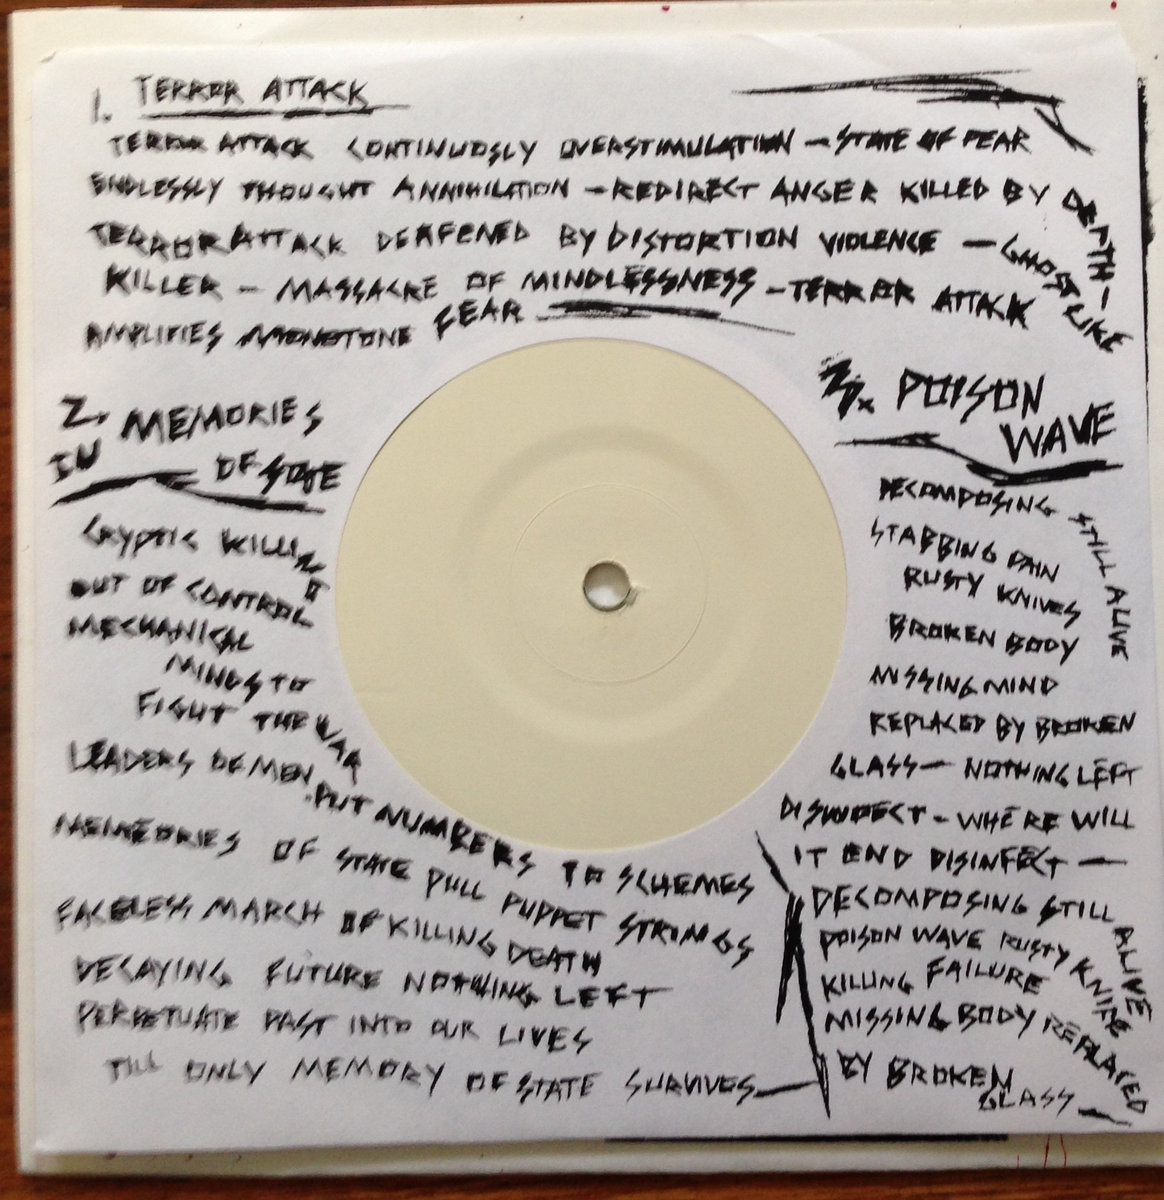 1. TERROR ATTACK
TERROR ATTACK CONTINUOSLY OVERSTIMULATION – STATE OF FEAR
ENDLESSLY THOUGHT ANNIHILATION – REDIRECT ANGER KILLED BY DEPTH –
TERROR ATTACK DEAFENED BY DISTORTION VIOLENCE – GHOSTLIKE
KILLER – MASSACRE OF MINDLESSNESS – TERROR ATTACK
AMPLIFIES MONOTONE FEAR
2. MEMORIES
IN OF STATE
CRYPTIC KILLING
OUT OF CONTROL
MECHANICAL
MINDS TO
FIGHT THE WAR
LEADERS OF MEN
PUT NUMBERS TO SCHEMES
MEMEORIES OF STATE PULL PUPPET STRINGS
FACELESS MARCH OF KILLING DEATH
DECAYING FUTURE NOTHING LEFT
PERPETUATE PAST INTO OUR LIVES
TILL ONLY MEMORY OF STATE SURVIVES
3. POISON
WAVE
DECOMPOSING STILL ALIVE
STABBING PAIN
RUSTY KNIVES
BROKEN BODY
MISSING MIND
REPLACED BY BROKEN
GLASS – NOTHING LEFT
– WHERE WILL
IT END DISINFECT –
DECOMPOSING STILL ALIVE
POISON WAVE RUSTY KNIFE
KILLING FAILURE
MISSING BODY REPLACED
BY BROKEN
GLASS –